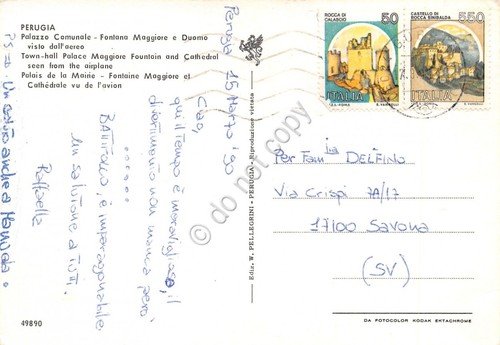 PERUGIA
Palazzo Comunale - Fontana Maggiore e Duomo
visto dall'aereo
Town-hall Palace Maggiore Fountain and Cathedral
seen from the airplane
Palais de la Mairie - Fontaine Maggiore et
Cathédrale vu de l'avion
Perugia 15 Marzo '90
Ciao,
qui il tempo è meraviglioso, il
divertimento non manca però
......
è impareggiabile
un salutone a tutti
Raffaella
PS = Un saluto anche a
49890
Ediz. W. PELLEGRINI - PERUGIA - Riproduzione vietata
ROCCA DI
CALASCIO
50
ITALIA
CASTELLO DI
ROCCA SINIBALDA
550
ITALIA
Per Fam. DELFINO
Via Crispi 7A/17
17100 Savona
(SV)
DA FOTOCOLOR KODAK EKTACHROME
© do not copy